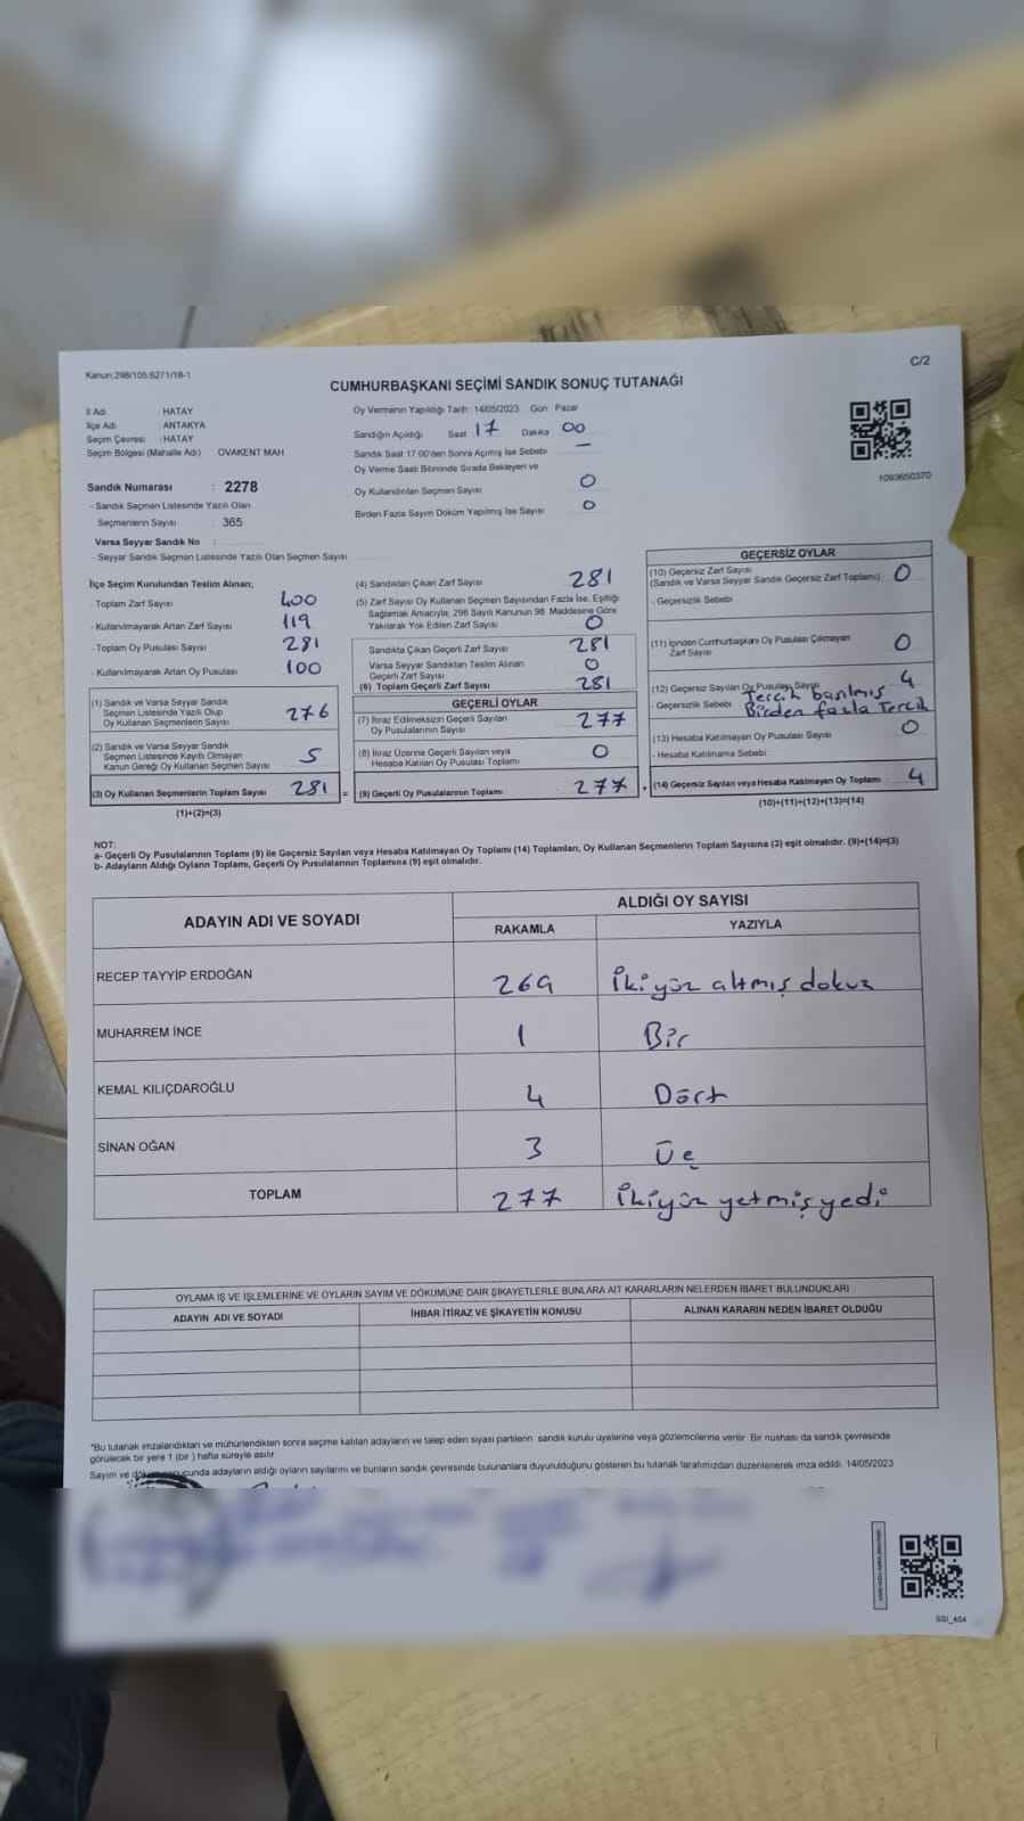 Kanun:298/105:6271/18-1
C/2
CUMHURBAŞKANI SEÇİMİ SANDIK SONUÇ TUTANAĞI
İl Adı : HATAY
İlçe Adı : ANTAKYA
Seçim Çevresi : HATAY
Seçim Bölgesi (Mahalle Adı) OVAKENT MAH
Sandık Numarası : 2278
- Sandık Seçmen Listesinde Yazılı Olan
Seçmenlerin Sayısı : 365
Varsa Seyyar Sandık No :
- Seyyar Sandık Seçmen Listesinde Yazılı Olan Seçmen Sayısı
Oy Vermenin Yapıldığı Tarih: 14/05/2023 Gün: Pazar
Sandığın Açıldığı Saat 17 Dakika 00
Sandık Saat 17.00'den Sonra Açılmış İse Sebebi —
Oy Verme Saati Bitiminde Sırada Bekleyen ve
Oy Kullandırılan Seçmen Sayısı 0
Birden Fazla Sayım Döküm Yapılmış İse Sayısı 0
1093650370
İlçe Seçim Kurulundan Teslim Alınan;
- Toplam Zarf Sayısı 400
- Kullanılmayarak Artan Zarf Sayısı 119
- Toplam Oy Pusulası Sayısı 281
- Kullanılmayarak Artan Oy Pusulası 100
(1) Sandık ve Varsa Seyyar Sandık
Seçmen Listesinde Yazılı Olup
Oy Kullanan Seçmenlerin Sayısı 276
(2) Sandık ve Varsa Seyyar Sandık
Seçmen Listesinde Kayıtlı Olmayan
Kanun Gereği Oy Kullanan Seçmen Sayısı 5
(3) Oy Kullanan Seçmenlerin Toplam Sayısı 281 =
(1)+(2)=(3)
(4) Sandıktan Çıkan Zarf Sayısı 281
(5) Zarf Sayısı Oy Kullanan Seçmen Sayısından Fazla İse, Eşitliği
Sağlamak Amacıyla, 298 Sayılı Kanunun 98. Maddesine Göre
Yakılarak Yok Edilen Zarf Sayısı 0
Sandıkta Çıkan Geçerli Zarf Sayısı 281
Varsa Seyyar Sandıktan Teslim Alınan
Geçerli Zarf Sayısı 0
(6) Toplam Geçerli Zarf Sayısı 281
GEÇERLİ OYLAR
(7) İtiraz Edilmeksizin Geçerli Sayılan
Oy Pusulalarının Sayısı 277
(8) İtiraz Üzerine Geçerli Sayılan veya
Hesaba Katılan Oy Pusulası Toplamı 0
(9) Geçerli Oy Pusulalarının Toplamı 277 +
GEÇERSİZ OYLAR
(10) Geçersiz Zarf Sayısı
(Sandık ve Varsa Seyyar Sandık Geçersiz Zarf Toplamı) 0
- Geçersizlik Sebebi
(11) İçinden Cumhurbaşkanı Oy Pusulası Çıkmayan
Zarf Sayısı 0
(12) Geçersiz Sayılan Oy Pusulası Sayısı 4
- Geçersizlik Sebebi Tercih basılmış
Birden fazla Tercih
(13) Hesaba Katılmayan Oy Pusulası Sayısı 0
- Hesaba Katılmama Sebebi
(14) Geçersiz Sayılan veya Hesaba Katılmayan Oy Toplamı 4
(10)+(11)+(12)+(13)=(14)
NOT:
a- Geçerli Oy Pusulalarının Toplamı (9) ile Geçersiz Sayılan veya Hesaba Katılmayan Oy Toplamı (14) Toplamları, Oy Kullanan Seçmenlerin Toplam Sayısına (3) eşit olmalıdır. (9)+(14)=(3)
b- Adayların Aldığı Oyların Toplamı, Geçerli Oy Pusulalarının Toplamına (9) eşit olmalıdır.
ADAYIN ADI VE SOYADI
ALDIĞI OY SAYISI
RAKAMLA YAZIYLA
RECEP TAYYİP ERDOĞAN 269 İkiyüz altmış dokuz
MUHARREM İNCE 1 Bir
KEMAL KILIÇDAROĞLU 4 Dört
SİNAN OĞAN 3 Üç
TOPLAM 277 İkiyüz yetmiş yedi
OYLAMA İŞ VE İŞLEMLERİNE VE OYLARIN SAYIM VE DÖKÜMÜNE DAİR ŞİKAYETLERLE BUNLARA AİT KARARLARIN NELERDEN İBARET BULUNDUKLARI
ADAYIN ADI VE SOYADI İHBAR İTİRAZ VE ŞİKAYETİN KONUSU ALINAN KARARIN NEDEN İBARET OLDUĞU
*Bu tutanak imzalandıktan ve mühürlendikten sonra seçime katılan adayların ve talep eden siyasi partilerin sandık kurulu üyelerine veya gözlemcilerine verilir. Bir nüshası da sandık çevresinde
görülecek bir yere 1 (bir) hafta süreyle asılır.
Sayım ve adayların aldığı oyların sayılarını ve bunların sandık çevresinde bulunanlara duyurulduğunu gösteren bu tutanak tarafımızdan düzenlenerek imza edildi. 14/05/2023